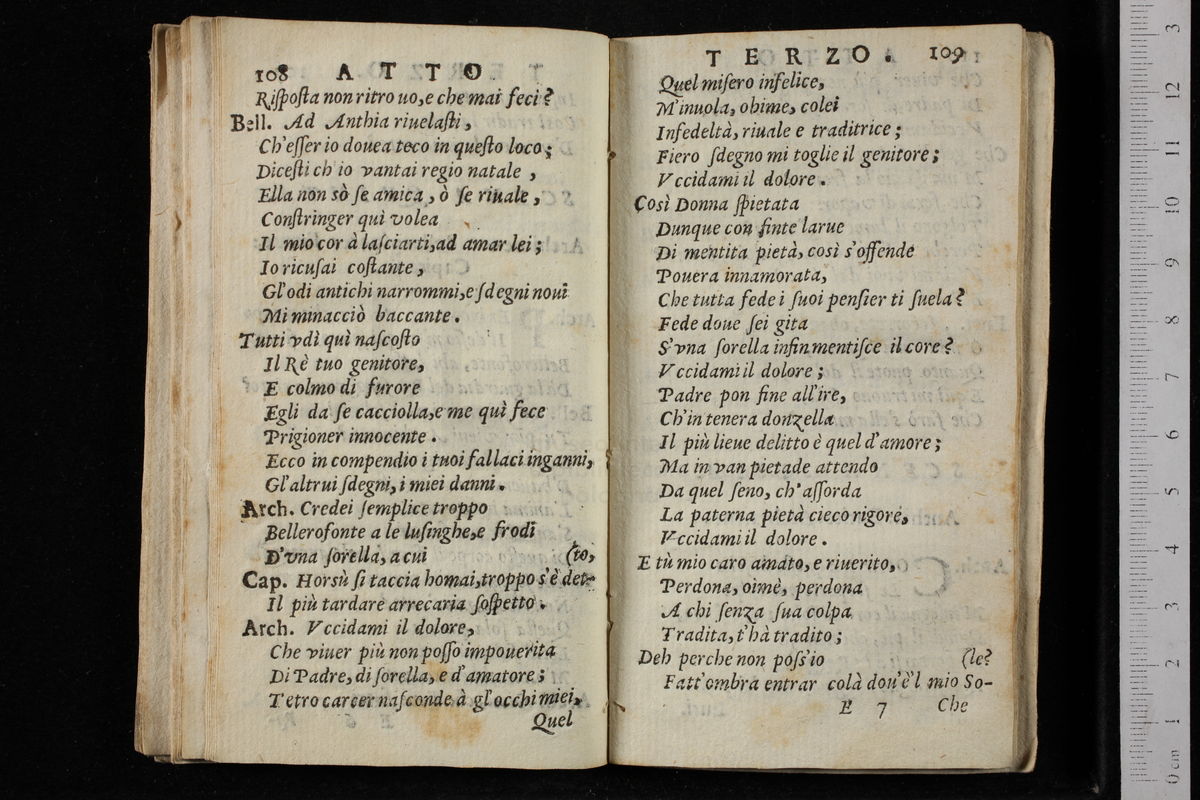 108 ATTO
Riſpoſta non ritro uo,e che mai feci?
Bell. Ad Anthia riuelaſti,
Ch'eſſer io douea teco in queſto loco;
Diceſti ch'io vantai regio natale ,
Ella non sò ſe amica , ò ſe riuale ,
Conſtringer quì volea
Il mio cor à laſciarti,ad amar lei;
Io ricuſai coſtante ,
Gl'odi antichi narrommi,e ſdegni noui
Mi minacciò baccante.
Tutti vdì quì naſcoſto
Il Rè tuo genitore,
E colmo di furore
Egli da ſe cacciolla,e me quì fece
Prigioner innocente.
Ecco in compendio i tuoi fallaci inganni,
Gl'altrui ſdegni, i miei danni.
Arch. Credei ſemplice troppo
Bellerofonte a le luſinghe,e frodi
D'vna ſorella, a cui (to,
Cap. Horsù ſi taccia homai,troppo s'è det-
Il più tardare arrecaria ſoſpetto.
Arch. Vccidami il dolore,
Che viuer più non poſſo impouerita
Di Padre, di ſorella, e d'amatore;
Tetro carcer naſconde à gl'occhi miei,
Quel
TERZO. 109
Quel miſero infelice,
M'inuola, ohime, colei
Infedeltà, riuale e traditrice;
Fiero ſdegno mi toglie il genitore;
Vccidami il dolore.
Così Donna ſpietata
Dunque con finte larue
Di mentita pietà, così s'offende
Pouera innamorata,
Che tutta fede i ſuoi penſier ti ſuela?
Fede doue ſei gita
S'vna ſorella infin mentiſce il core?
Vccidami il dolore;
Padre pon fine all'ire,
Ch'in tenera donzella
Il più lieue delitto è quel d'amore;
Ma in van pietade attendo
Da quel ſeno, ch'aſſorda
La paterna pietà cieco rigore,
Vccidami il dolore.
E tù mio caro amato, e riuerito,
Perdona, oimè, perdona
A chi ſenza ſua colpa
Tradita, t'hà tradito;
Deh perche non poſs'io (le?
Fatt'ombra entrar colà dou'è'l mio So-
E 7 Che
0 cm 1 2 3 4 5 6 7 8 9 10 11 12 3